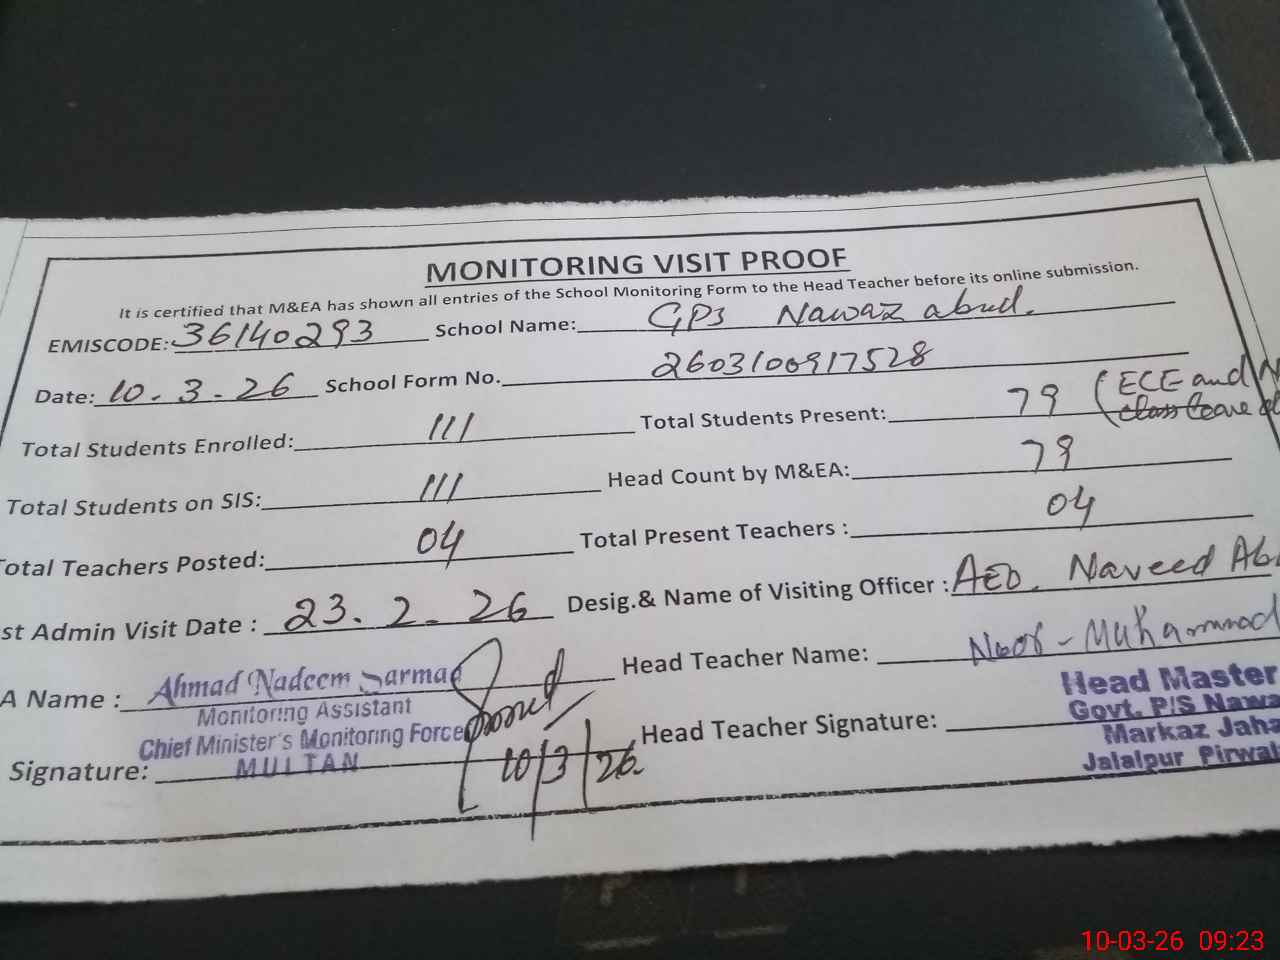 MONITORING VISIT PROOF
It is certified that M&EA has shown all entries of the School Monitoring Form to the Head Teacher before its online submission.
EMISCODE: 36140293 School Name: GPS Nawaz abud.
Date: 10.3.26 School Form No. 2603100917528
Total Students Enrolled: 111 Total Students Present: 79 (ECE and N
class leave
Total Students on SIS: 111 Head Count by M&EA: 79
Total Teachers Posted: 04 Total Present Teachers : 04
st Admin Visit Date : 23.2.26 Desig.& Name of Visiting Officer : AEO. Naveed Ab
A Name : Ahmad Nadeem Sarmad Head Teacher Name: Noor-Muhammad
Monitoring Assistant
Chief Minister's Monitoring Force
Signature: MULTAN 10/3/26. Head Teacher Signature:
Head Master
Govt. P/S Nawa
Markaz Jaha
Jalalpur Pirwal
10-03-26 09:23